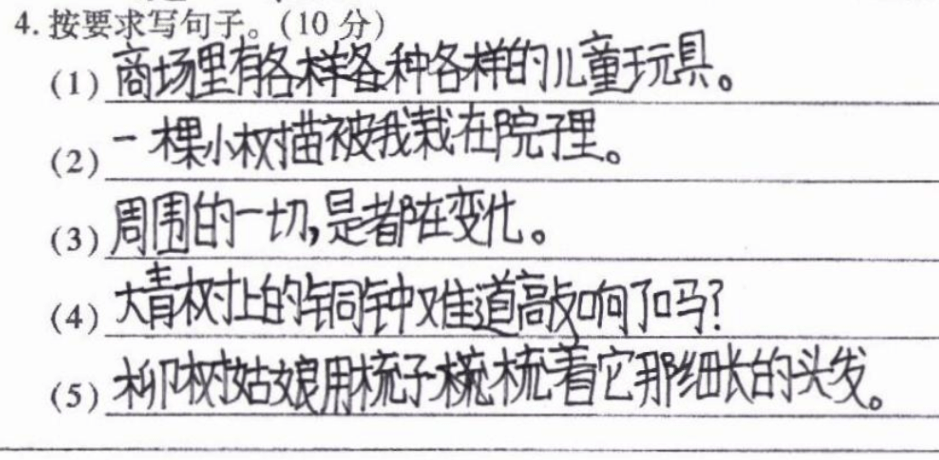 4. 按要求写句子。(10 分)
(1) 商场里有各样各种各样的儿童玩具。
(2) 一棵小树描被我栽在院子里。
(3) 周围的一切,是都在变化。
(4) 大青树上的铜钟难道敲响了吗?
(5) 柳树姑娘用梳子梳着它那细长的头发。